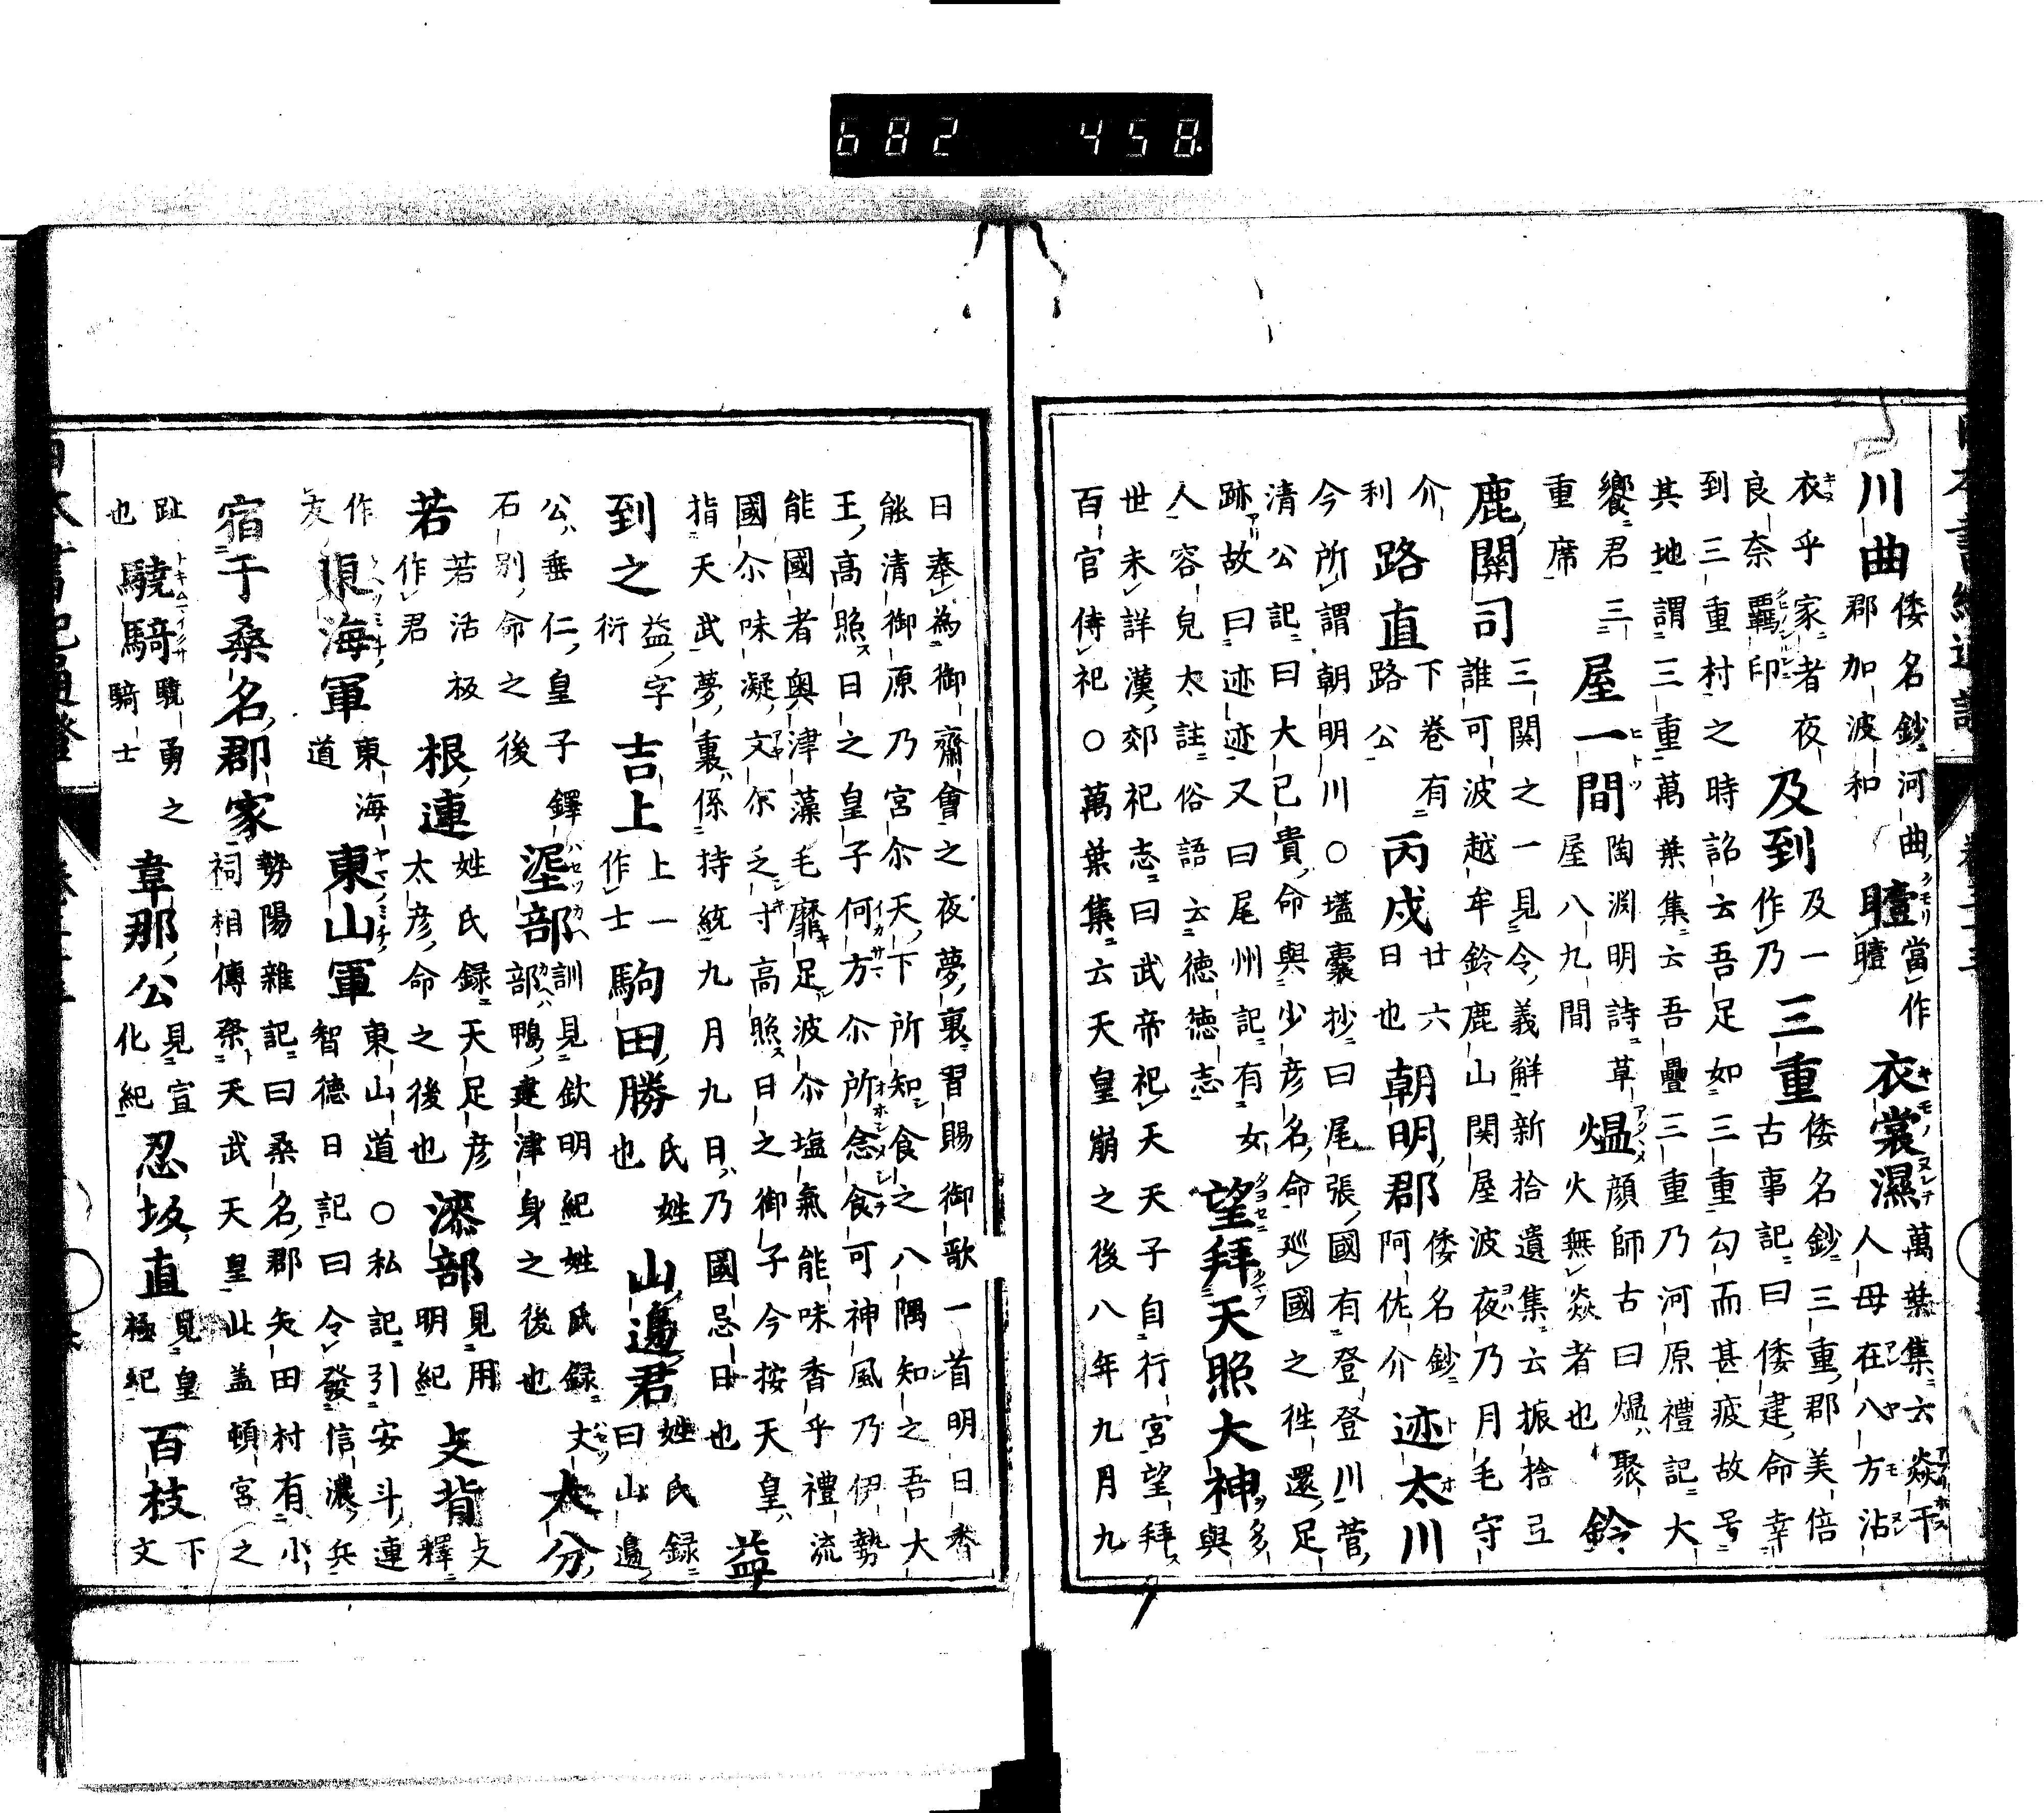 川曲倭名鈔河曲郡加波和曀當作曀衣裳濕萬葉集云焱干人母在八方沾
衣乎家者夜良奈羈印及到及一作乃三重倭名鈔三重郡美倍古事記曰倭建命幸
到三重村之時詔云吾足如三重勾而甚疲故号
其地謂三重萬葉集云吾疊三重乃河原禮記大
饗君三重席屋一間陶淵明詩草屋八九間熅顔師古曰熅聚火無焱者也鈴
鹿關司三関之一見令義解新拾遺集云振捨弖誰可波越牟鈴鹿山関屋波夜乃月毛守
介利路直下卷有路公丙戍廿六日也朝明郡倭名鈔阿佐介迹太川
今所謂朝明川○壒囊抄曰尾張國有登登川菅
清公記曰大已貴命與少彦名命巡國之徃還足
跡故曰迹迹又曰尾州記有女人容皃太註俗語云德德志望拜天照大神多與
世未詳漢郊祀志曰武帝祀天天子自行宮望拜
百官侍祀○萬葉集云天皇崩之後八年九月九
日奉為御齋會之夜夢裏習賜御歌一首明日香
能清御原乃宮尒天下所知食之八隅知之吾大
王高照日之皇子何方尒所念食可神風乃伊勢
能國者奥津藻毛靡足波尒塩氣能味香乎禮流
國尒味凝文尒乏寸高照日之御子今按天皇
指天武夢裏係持統九月九日乃國忌日也益
到之益字衍吉上上一作士駒田勝氏姓也山邊君姓氏録曰山邊
公垂仁皇子鐸石別命之後埿部訓見欽明紀姓氏録丈部鴨建津身之後也大分
若若活极作君根連姓氏録天足彦太彦命之後也漆部見用明紀攴背攴釋
作友東海軍東海道東山軍東山道○私記引安斗連智德日記曰令發信濃兵
宿于桑名郡家勢陽雜記曰桑名郡矢田村有小祠相傳祭天武天皇此盖頓宮之
趾也驍騎驍勇之騎士韋那公見宣化紀忍坂直見皇極紀百枝下文
682 458